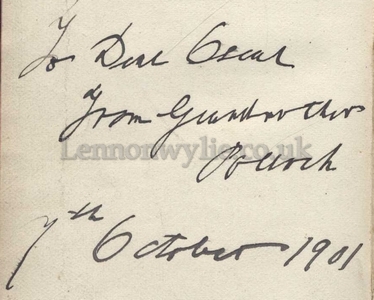 To Dear Oscar
From Grandmother
Lennonwylie.co.uk
Pollock
7th October 1901